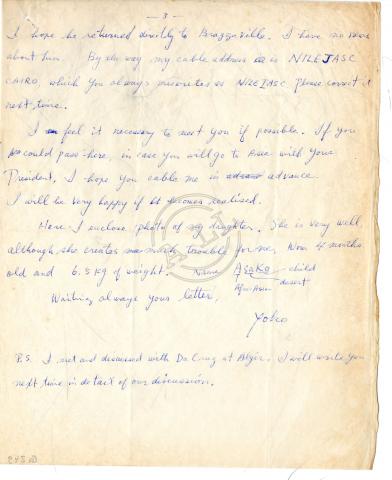 — 3 —
I hope he returned directly to Brazzaville. I have no news
about him. By the way my cable address is NILEJASC
CAIRO, which you always miswrites as NILETASC Please correct it
next time.
I feel it necessary to meet you if possible. If you
could pass here, in case you will go to Asia with your
President, I hope you cable me in advance.
I will be very happy if it realised.
Here I enclose photo of my daughter. She is very well,
although she creates much trouble for me, Now 4 months
old and 6.5 kg of weight. Name Asako child
desert
Waiting always your letter,
Yoko
P.S. I met and discussed with Dr Cruz at Algier. I will write you
next time in detail of our discussion.